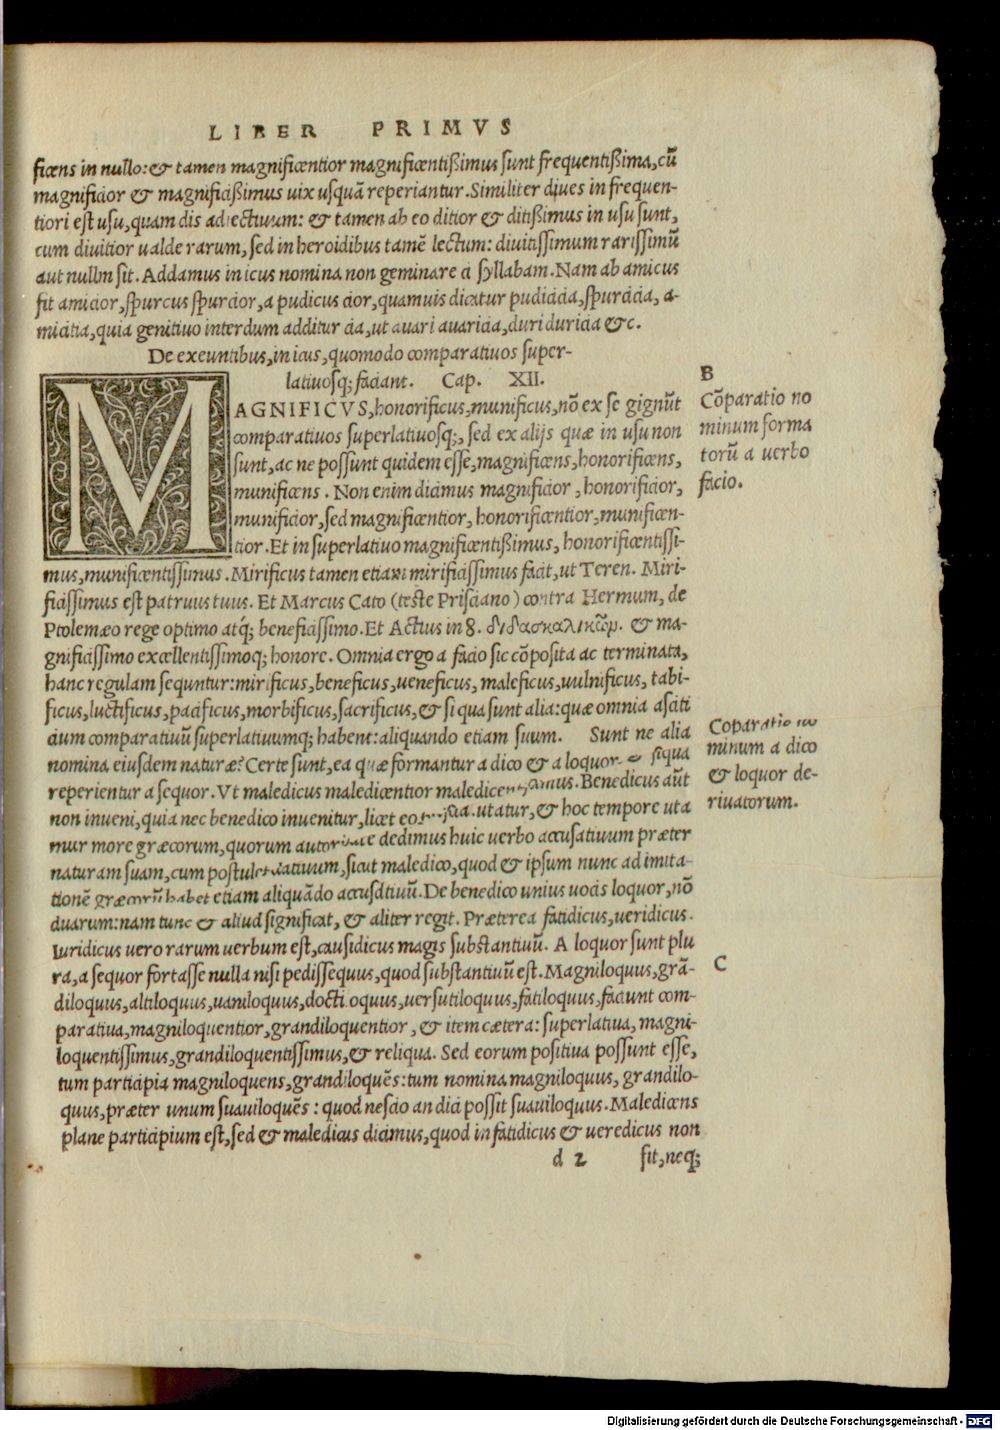 LIBER PRIMVS
ficens in nullo: & tamen magnificentior magnificentißimus sunt frequentißima, cū
magnificior & magnificißimus uix usquā reperiantur. Similiter diues in frequen-
tiori est usu, quam dis adiectiuum: & tamen ab eo ditior & ditißimus in usu sunt,
cum diuitior ualde rarum, sed in heroidibus tamē lectum: diuitissimum rarissimū
aut nullm sit. Addamus in icus nomina non geminare ci syllabam. Nam ab amicus
fit amicior, spurcus spurcior, a pudicus cior, quamuis dicatur pudicicia, spurcicia, a-
micitia, quia genitiuo interdum additur cia, ut auari auaricia, duri duricia &c.
De exeuntibus, in icus, quomodo comparatiuos super-
latiuosq; faciant. Cap. XII.
MAGNIFICVS, honorificus, munificus, nō ex se gignūt
comparatiuos superlatiuosq;, sed ex alijs quæ in usu non
sunt, ac ne possunt quidem esse, magnificens, honorificens,
munificens. Non enim dicimus magnificior, honorificior,
munificior, sed magnificentior, honorificentior, munificen-
tior. Et in superlatiuo magnificentißimus, honorificentissi-
mus, munificentissimus. Mirificus tamen etiam mirificissimus facit, ut Teren. Miri-
ficissimus est patruus tuus. Et Marcus Cato (teste Prisciano) contra Hermum, de
Ptolemæo rege optimo atq; beneficissimo. Et Actius in 8. διδασκαλικῶμ. & ma-
gnificissimo excellentissimoq; honore. Omnia ergo a facio sic cōposita ac terminata,
hanc regulam sequntur: mirificus, beneficus, ueneficus, maleficus, uulnificus, tabi-
ficus, luctificus, pacificus, morbificus, sacrificus, & si qua sunt alia: quæ omnia asciti
cium comparatiuū superlatiuumq; habent: aliquando etiam suum. Sunt ne alia
nomina eiusdem naturæ? Certe sunt, ea quæ formantur a dico & a loquor siqua
reperientur a sequor. Vt maledicus maledicentior Benedicus aūt
non inueni, quia nec benedico inuenitur, licet utatur, & hoc tempore uta
mur more græcorum, quorum dedimus huic uerbo accusatiuum præter
naturam suam, cum postulet datiuum, sicut maledico, quod & ipsum nunc ad imita-
tionē græcorū habet etiam aliquādo accusdtiuū. De benedico unius uocis loquor, nō
duarum: nam tunc & aliud significat, & aliter regit. Præterea fatidicus, ueridicus.
Iuridicus uero rarum uerbum est, causidicus magis substantiuū. A loquor sunt plu
ra, a sequor fortasse nulla nisi pedissequus, quod substantiuū est. Magniloquus, grā-
diloquus, altiloquus, uaniloquus, docti oquus, uersutiloquus, fatiloquus, faciunt com-
paratiua, magniloquentior, grandiloquentior, & item cætera: superlatiua, magni-
loquentissimus, grandiloquentissimus, & reliqua. Sed eorum positiua possunt esse,
tum participia magniloquens, grandiloquēs: tum nomina magniloquus, grandilo-
quus, præter unum suauiloquēs: quod nescio an dici possit suauiloquus. Maledicens
plane participium est, sed & maledicus dicimus, quod in fatidicus & ueredicus non
d 2 sit, neq;
B
Cōparatio no
minum forma
torū a uerbo
facio.
Coparatio no
minum a dico
& loquor de-
riuatorum.
C
Digitalisierung gefördert durch die Deutsche Forschungsgemeinschaft - DFG